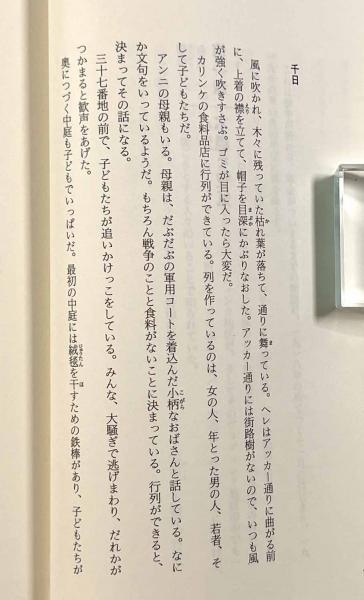 十日
風に吹かれ、木々に残っていた枯れ葉が落ちて、通りに舞っている。ヘレはアッカー通りに曲がる前
に、上着の襟を立てて、帽子を目深にかぶりなおした。アッカー通りには街路樹がないので、いつも風
が強く吹きすさぶ。ゴミが目に入ったら大変だ。
カリンケの食料品店に行列ができている。列を作っているのは、女の人、年とった男の人、若者、そ
して子どもたちだ。
アンニの母親もいる。母親は、だぶだぶの軍用コートを着込んだ小柄なおばさんと話している。なに
か文句をいっているようだ。もちろん戦争のことと食料がないことに決まっている。行列ができると、
決まってその話になる。
三十七番地の前で、子どもたちが追いかけっこをしている。みんな、大騒ぎで逃げまわり、だれかが
つかまると歓声をあげた。
奥につづく中庭も子どもでいっぱいだ。最初の中庭には絨毯を干すための鉄棒があり、子どもたちが